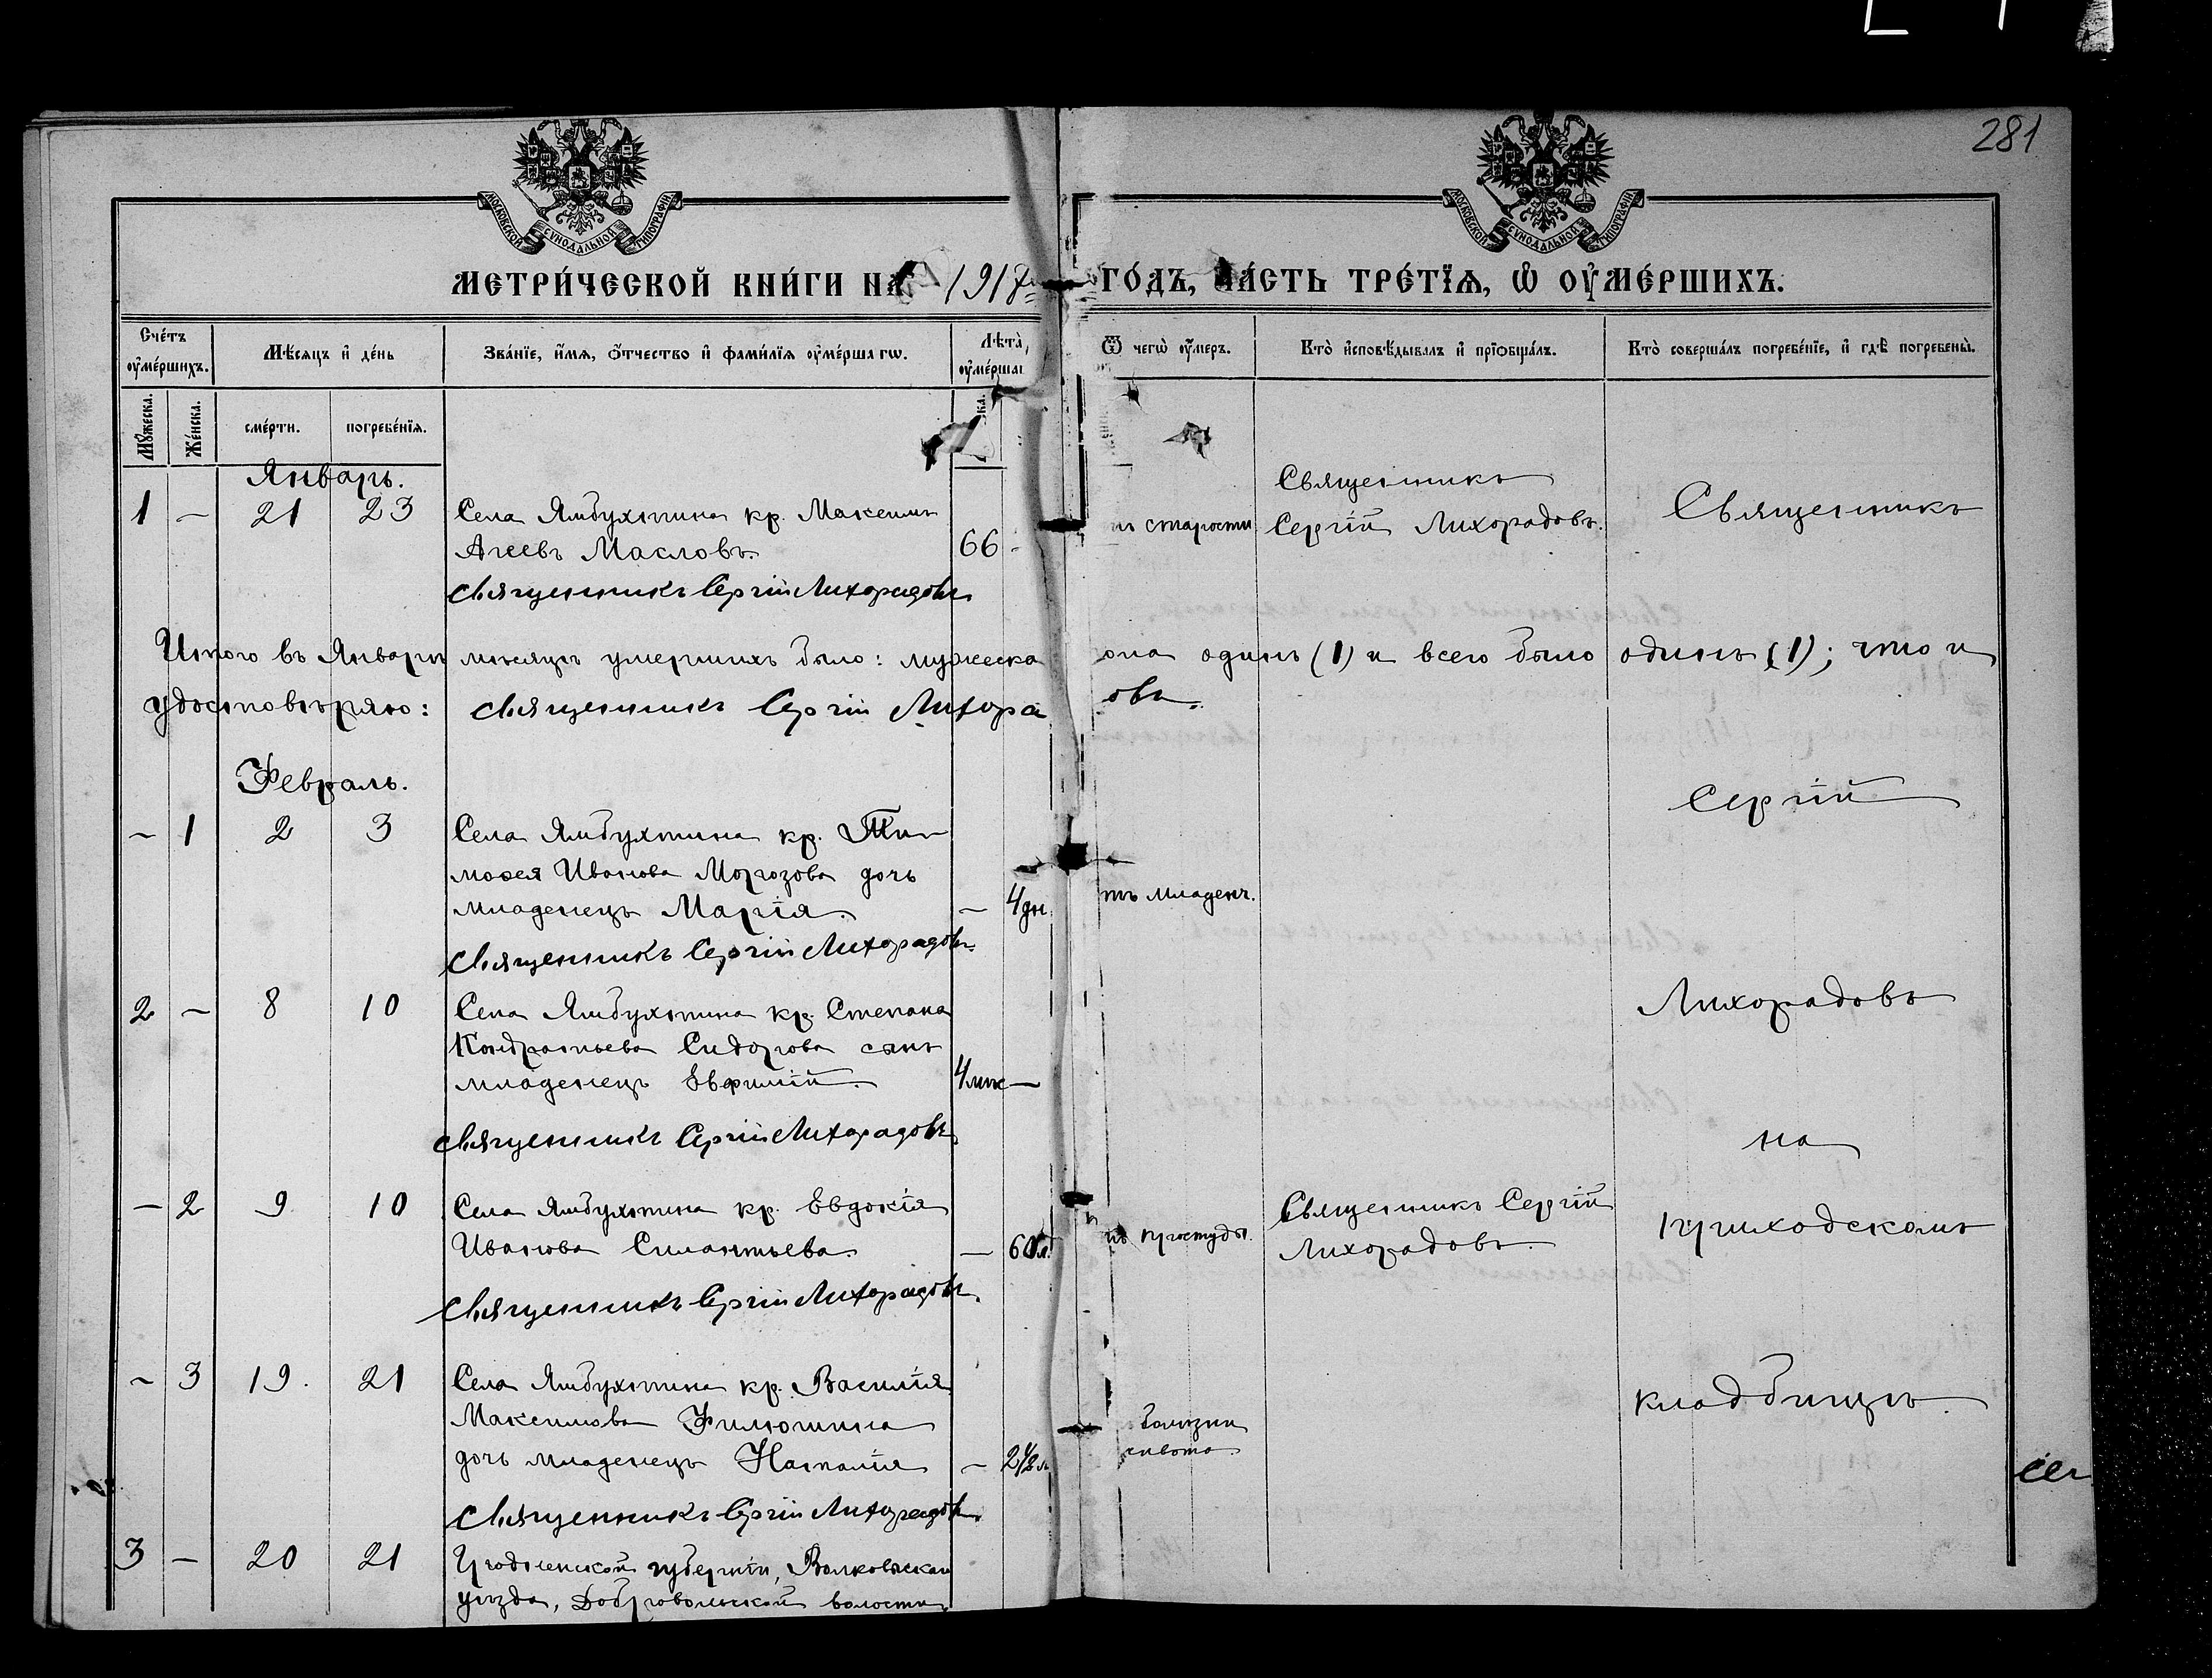 281
МОСКОВСКОЙ СУНОДАЛЬНОЙ ТИПОГРАФІИ
МОСКОВСКОЙ СУНОДАЛЬНОЙ ТИПОГРАФІИ
МЕТРИ́ЧЕСКОЙ КНИ́ГИ НА 1917 ГО́ДЪ, ЧА́СТЬ ТРЕ́ТЇѦ, Ѡ҆ ОУ҆МЕ́РШИХЪ.
Счетъ оумершихъ.
Мѣсяцъ и день
Званіе, имя, отчество и фамилія оумершагѡ.
Лѣта оумершаг
Ѿ чегѡ оумеръ.
Кто исповѣдывалъ и пріобщалъ.
Кто совершалъ погребеніе, и гдѣ погребены.
Мужеска.
Женска.
смерти.
погребенія.
Январь.
1 — 21 23
Села Ямбухтина кр. Максимъ
Агеевъ Масловъ.
66 -
старости
Священникъ
Сергій Лихорадовъ.
Священникъ
Священникъ Сергій Лихорадовъ
Итого въ Январѣ мѣсяцѣ умершихъ было: мужеска пола одинъ (1) и всего было одинъ (1); что и
удостовѣряю: Священникъ Сергій Лихора овъ.
Февраль.
Сергій
— 1 2 3
Села Ямбухтина кр. Ти-
моѳея Иванова Морозова дочь
младенецъ Марія.
— 4 дн.
тъ младенч.
Священникъ Сергій Лихорадовъ.
Лихорадовъ
2 — 8 10
Села Ямбухтина кр. Степана
Кондратьева Сидорова сынъ
младенецъ Евфимій.
4 мѣс —
Священникъ Сергій Лихорадовъ
на
— 2 9 10
Села Ямбухтина кр. Евдокія
Иванова Силантьева.
— 60 л.
простуды.
Священникъ Сергій
Лихорадовъ.
приходскомъ
Священникъ Сергій Лихорадовъ.
— 3 19. 21
Села Ямбухтина кр. Василія
Максимова Филюшина
дочь младенецъ Наталія
— 2 1/2 м
болѣзни
живота.
кладбищѣ.
Священникъ Сергій Лихорадовъ
3 — 20 21
Гродненской губерніи, Волковыскаго
уѣзда, Добровольской волости,